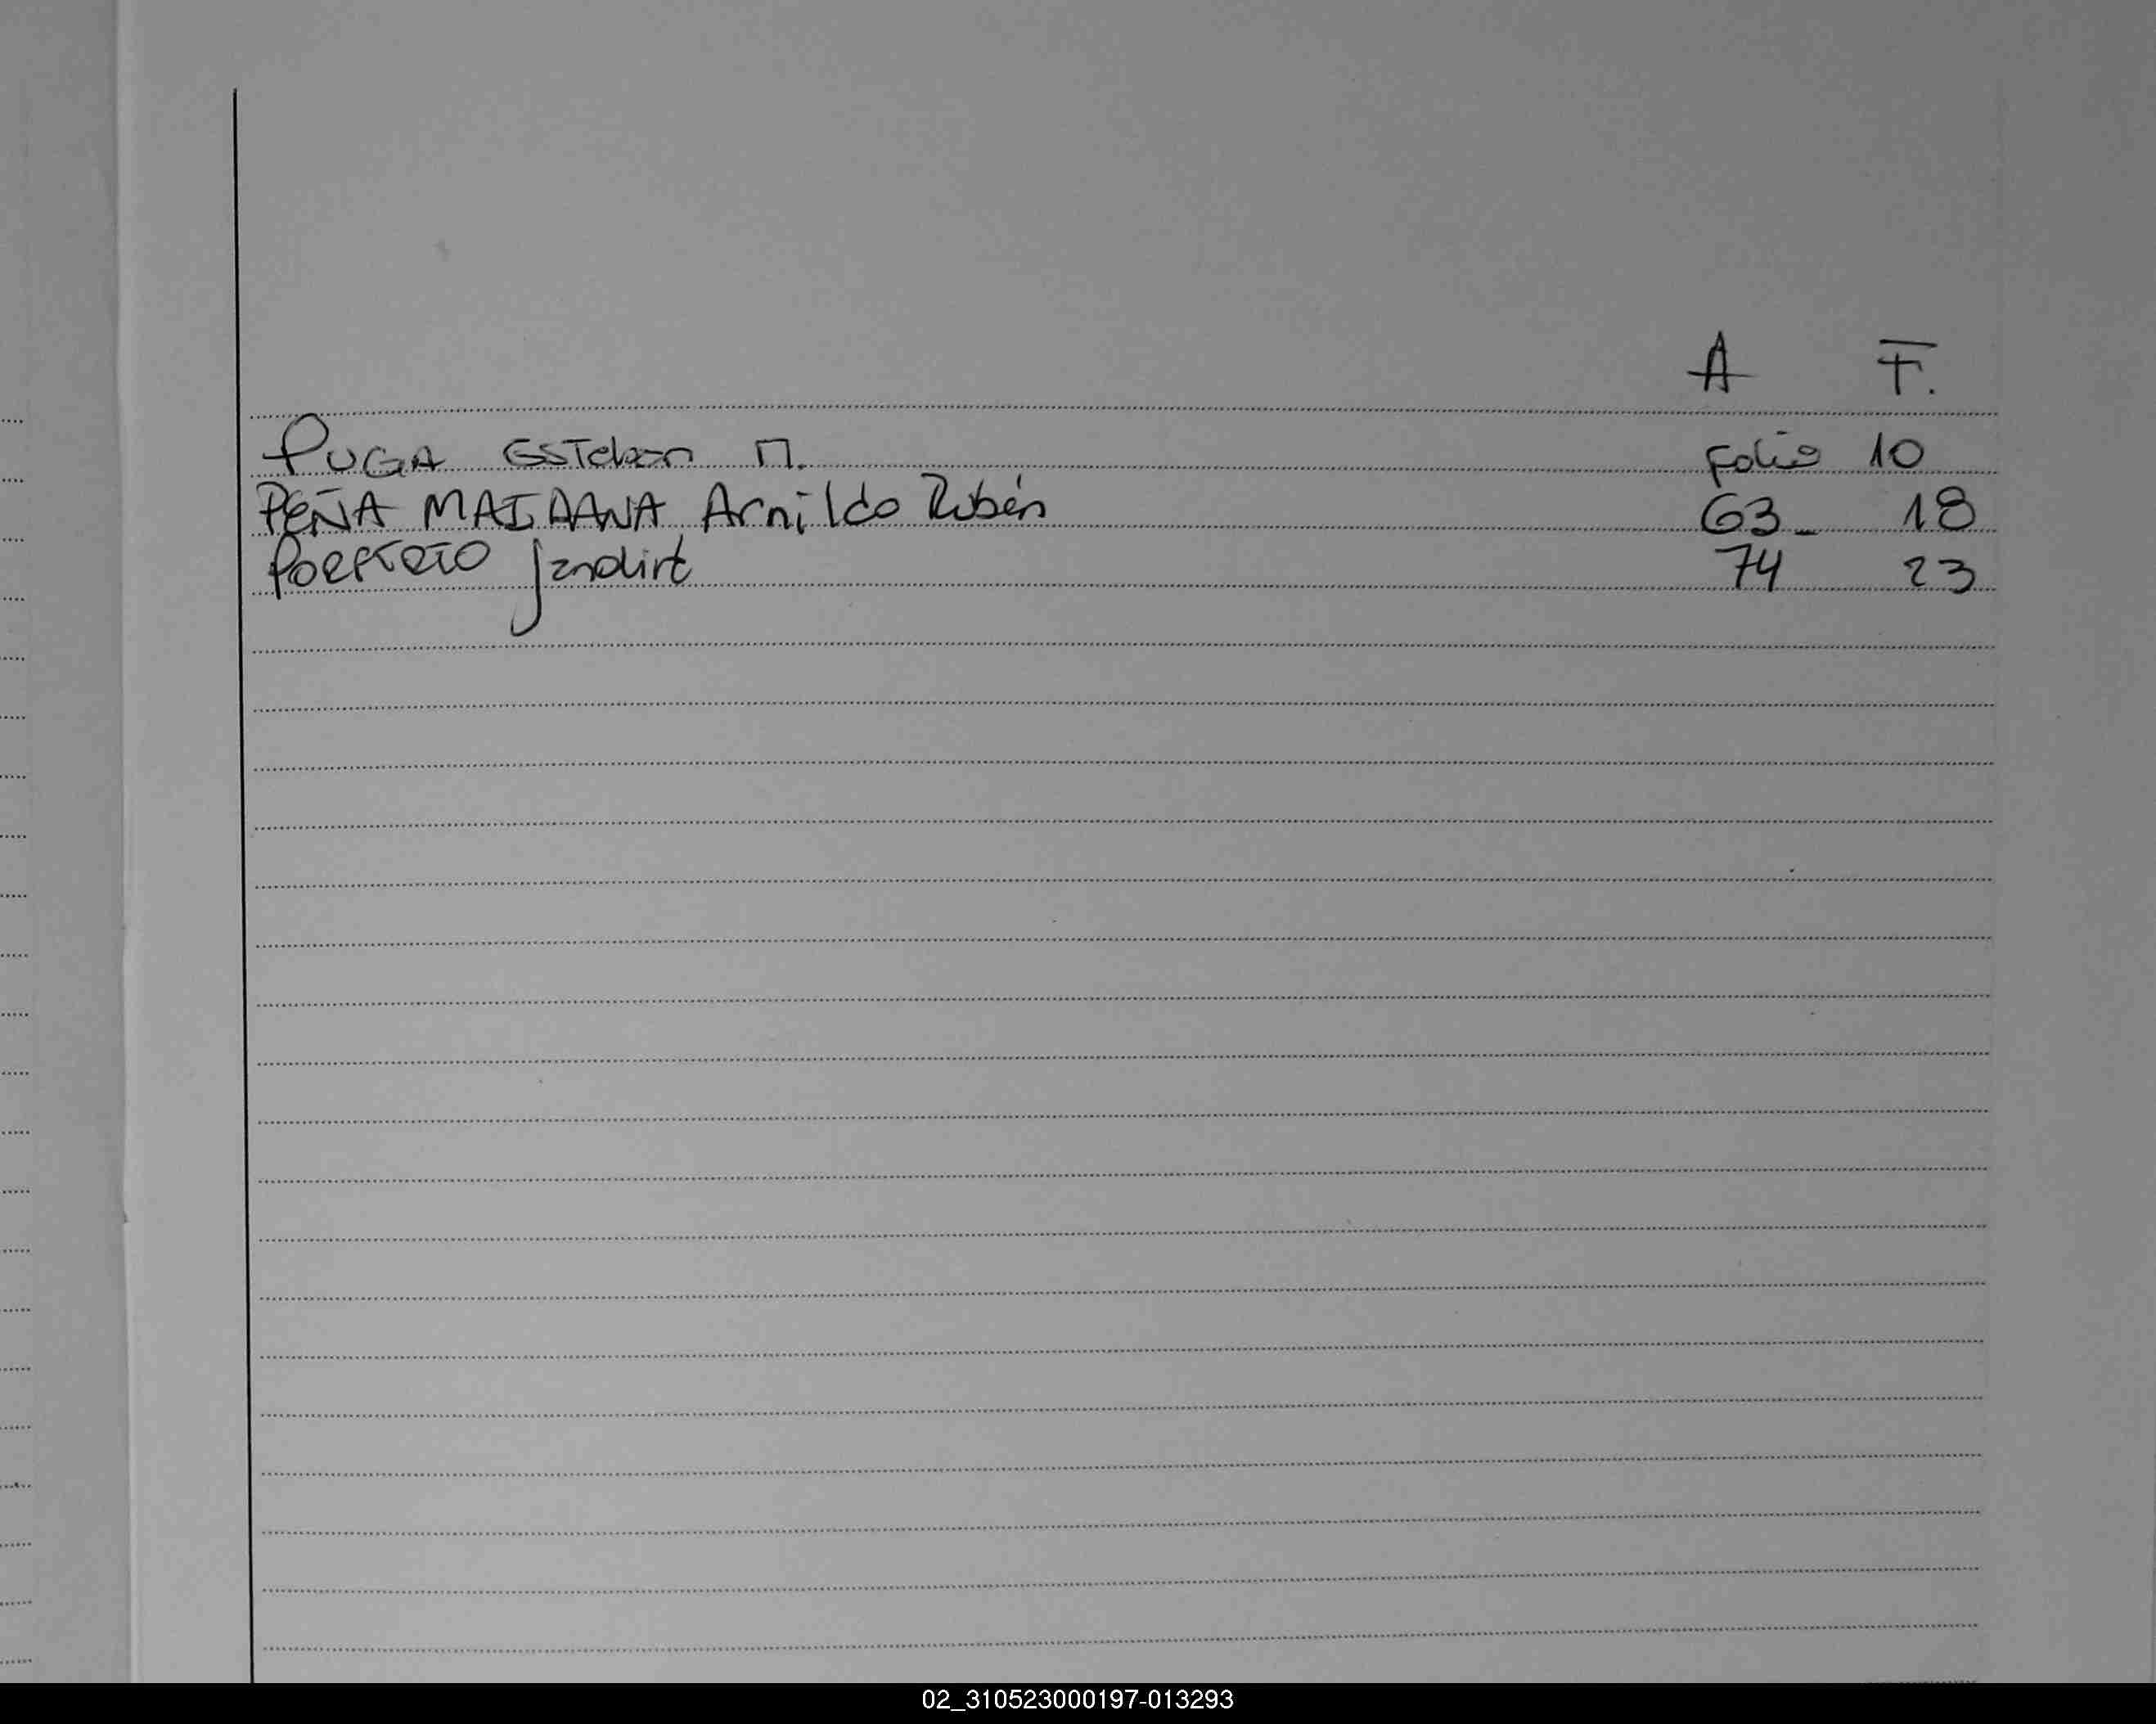 A F.
PUGA Esteban M. folio 10
PEÑA MAIDANA Arnildo Rubén 63_ 18
PORFIRIO 74 23
02_310523000197-013293